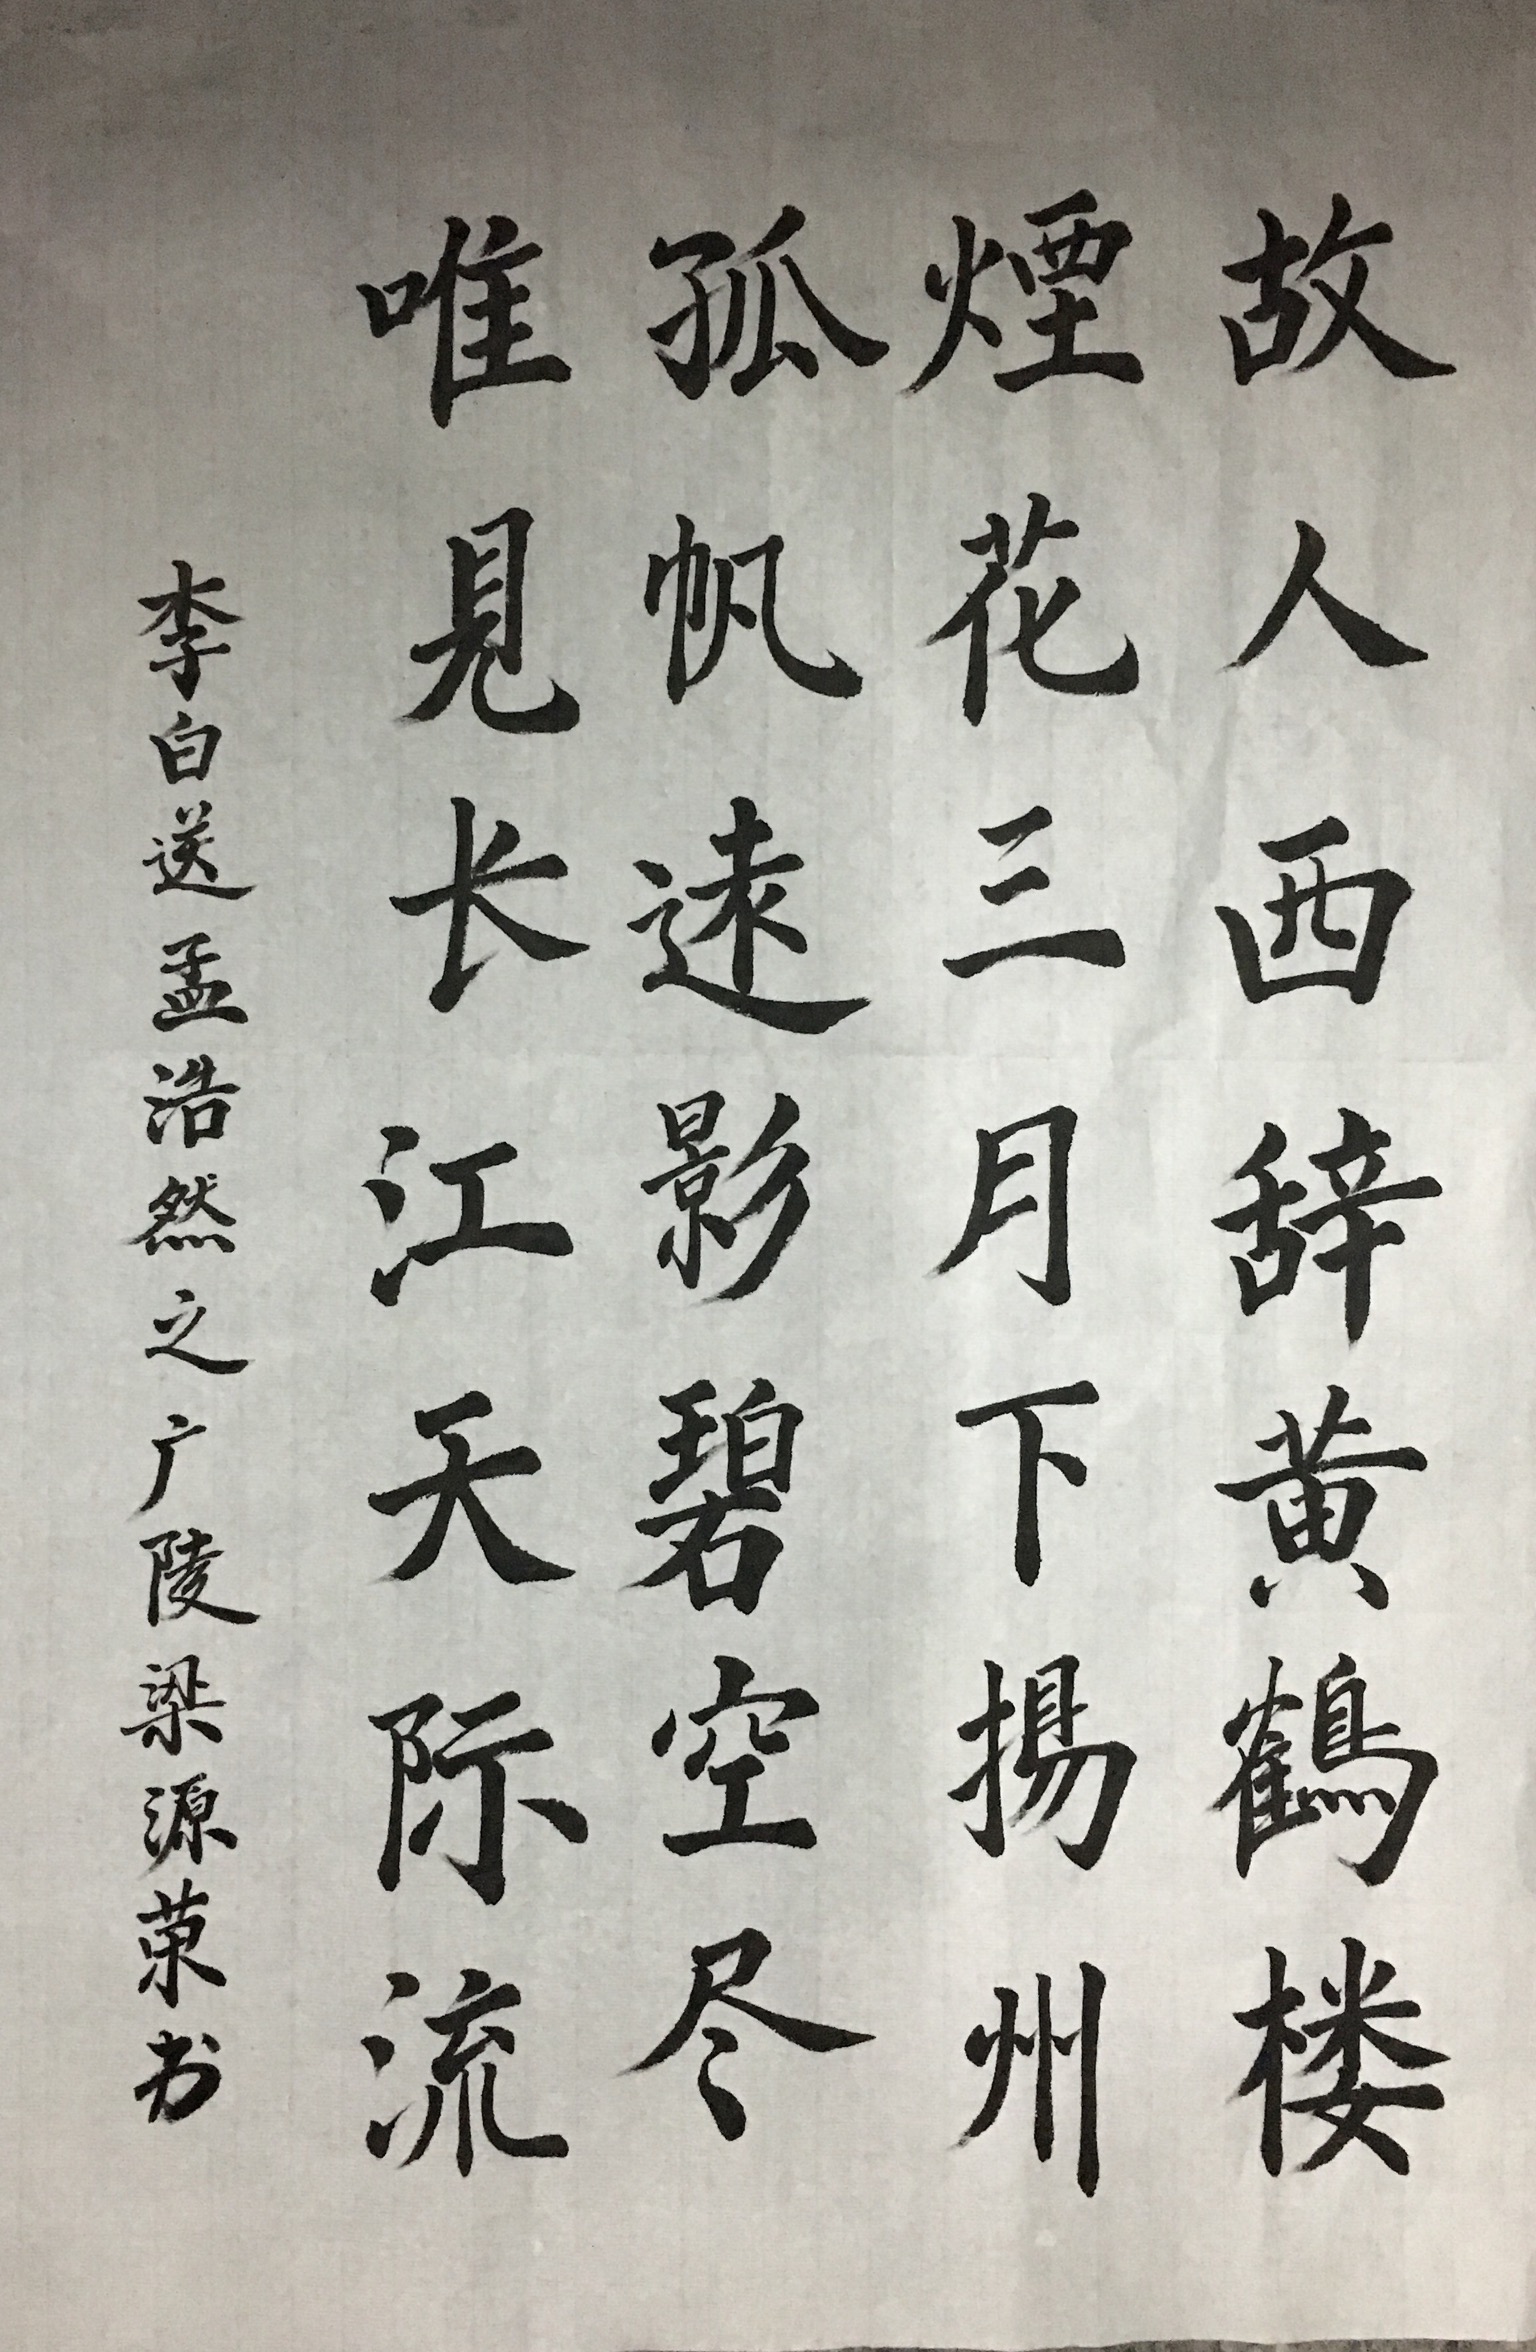 故人西辞黄鹤楼
煙花三月下揚州
孤帆逺影碧空尽
唯見长江天际流
李白送孟浩然之广陵梁源荣书